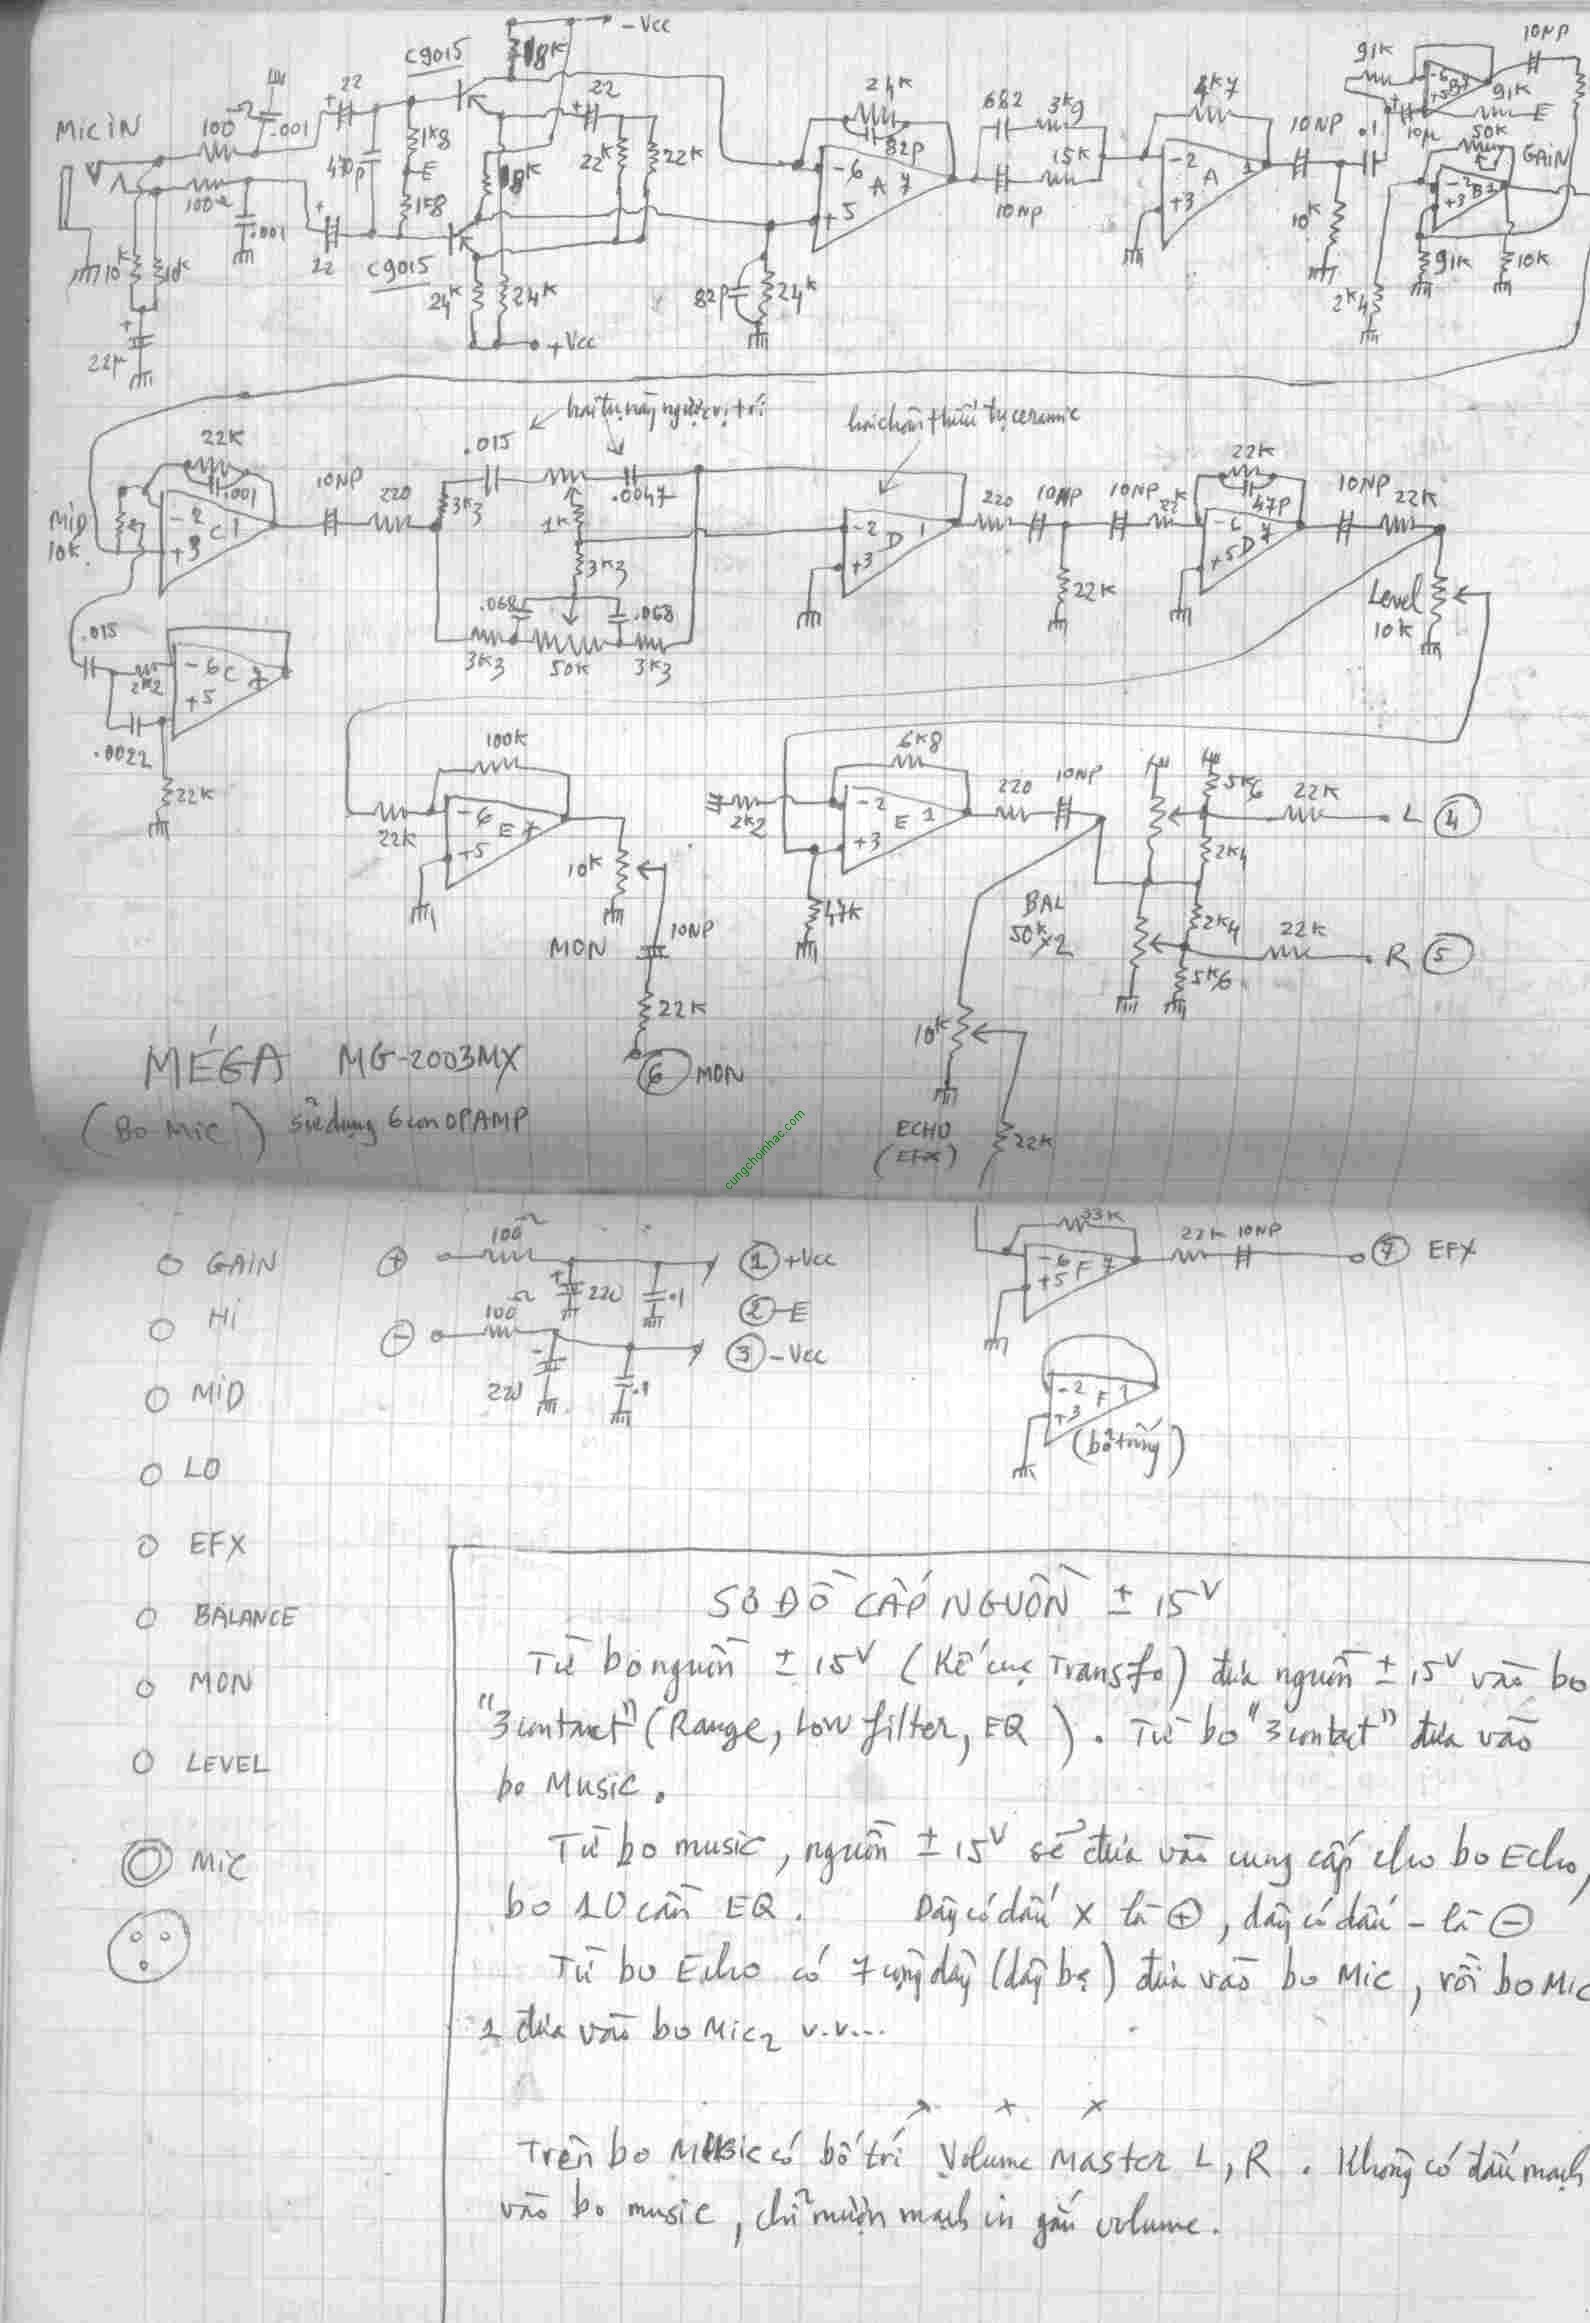 -Vcc
C9015
18K
Mic iN
100Ω
.001
22
470p
1K8
E
1K8
22
22K
22K
24K
82p
-6 A 7
+5
682
3K9
15K
10NP
4K7
-2 A 1
+3
10NP
.1
10K
91K
-6 B 7
+5
10µ
91K
E
10NP
50K
GAIN
-2 B 1
+3
91K
10K
2K4
100Ω
.001
22
C9015
10K
10K
22µ
24K
24K
+Vcc
82p
24K
hai tụ này ngược vị trí
hai chân thiếu tụ ceramic
22K
.001
MiD
10K
-2 C 1
+3
10NP
220
3K3
.015
.0047
1K
3K3
.068
.068
3K3
50K
3K3
-2 D 1
+3
220
10NP
10NP
22K
22K
22K
47P
-6 D 7
+5
10NP
22K
Level
10K
.015
2K2
-6 C 7
+5
.0022
22K
100K
22K
-6 E 7
+5
10K
MON
10NP
22K
6 MON
6K8
2K2
-2 E 1
+3
47K
220
10NP
BAL
50K x2
5K6
22K
L 4
2K4
2K4
22K
R 5
5K6
10K
ECHO
(EFX)
22K
MÉGA MG-2003MX
(Bo Mic) sử dụng 6 con OPAMP
cungchoinhac.com
GAiN
Hi
MiD
LO
EFX
BALANCE
MON
LEVEL
MiC
+
100Ω
220
.1
1 +Vcc
2 -E
-
100Ω
220
.1
3 -Vcc
33K
-6 F 7
+5
22K
10NP
7 EFX
-2 F 1
+3
(bỏ trống)
SƠ ĐỒ CẤP NGUỒN ± 15V
Từ bo nguồn ± 15V (Kế cục Transfo) đưa nguồn ± 15V vào bo
"3 contact" (Range, Low filter, EQ). Từ bo "3 contact" đưa vào
bo Music.
Từ bo music, nguồn ± 15V sẽ đưa vào cung cấp cho bo Echo,
bo 10 cần EQ. Dây có dấu x là +, dây có dấu - là -
Từ bo Echo có 7 cọng dây (dây bẹ) đưa vào bo Mic, rồi bo Mic
1 đưa vào bo Mic2 v.v...
x x x
Trên bo Music có bố trí Volume Master L, R. Không có đấu mạch
vào bo music, chỉ mượn mạch in gắn volume.